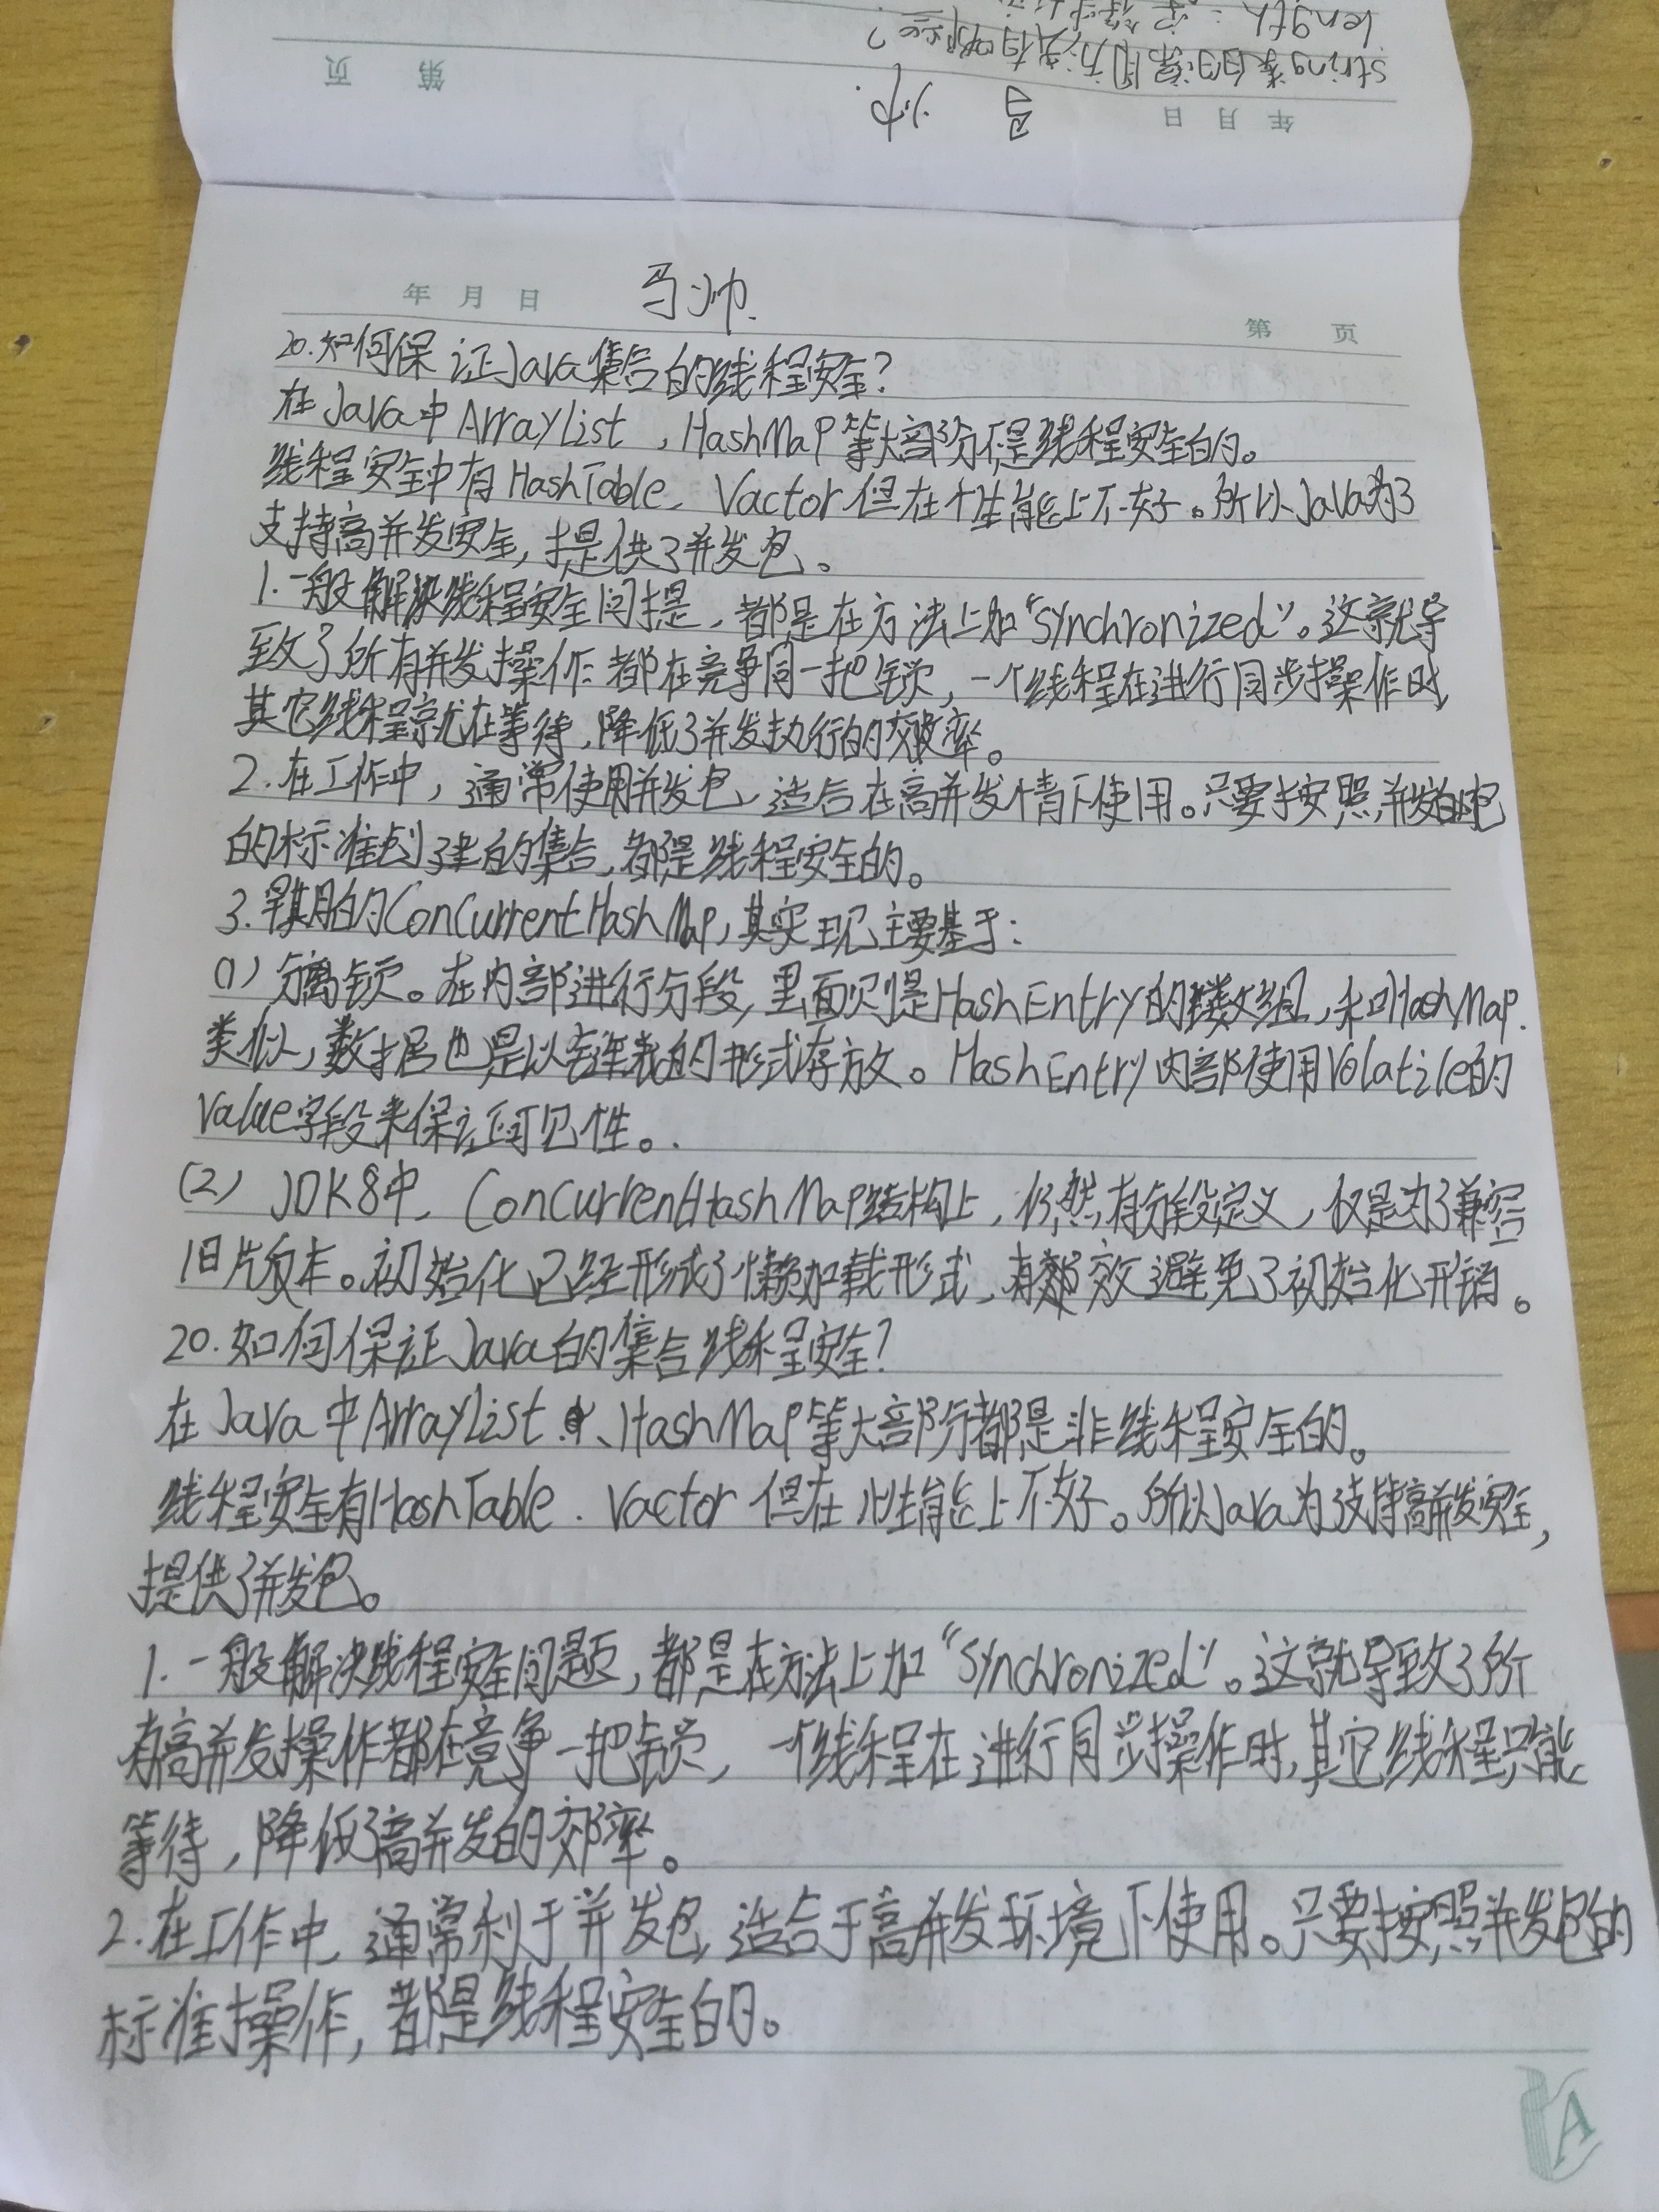 length:字符串
string类的常用方法有哪些?
马帅.
年 月 日
第 页
年 月 日
马帅.
第 页
20.如何保证Java集合的线程安全?
在Java中ArrayList,HashMap等大部分不是线程安全的。
线程安全中有HashTable、Vactor但在个性能上不好。所以Java为了
支持高并发安全,提供了并发包。
1.一般解决线程安全问提,都是在方法上加“Synchronized”。这就导
致了所有并发操作都在竞争同一把锁,一个线程在进行同步操作时,
其它线程就在等待,降低了并发执行的效率。
2.在工作中,通常使用并发包,适合在高并发情下使用。只要按照并发的包
的标准创建的集合,都是线程安全的。
3.早期的ConCurrentHashMap,其实现主要基于:
(1)分离锁。在内部进行分段,里面则是HashEntry的数组,和HashMap.
类似,数据也是以链表的形式存放。HashEntry内部使用Volatile的
Value字段来保证可见性。.
(2) JDK8中,ConCurrentHashMap结构上,仍然有分段定义,仅是为了兼容
旧版本。初始化已经形成了懒加载形式,有效避免了初始化开销。
20.如何保证Java的集合线程安全?
在Java中ArrayList、HashMap等大部分都是非线程安全的。
线程安全有HashTable.Vactor但在性能上不好。所以Java为了支持高并发安全,
提供了并发包。
1.一般解决线程安全问题,都是在方法上加“Synchronized”。这就导致了所
有高并发操作都在竞争一把锁,一个线程在进行同步操作时,其它线程只能
等待,降低了高并发的效率。
2.在工作中,通常利于并发包,适合于高并发环境下使用。只要按照并发包的
标准操作,都是线程安全的。
A